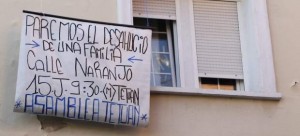 PAREMOS EL DESAHUCIO
DE UNA FAMILIA
CALLE NARANJO
15 J-9:30-(M) TETUAN
ASAMBLEA TETUAN